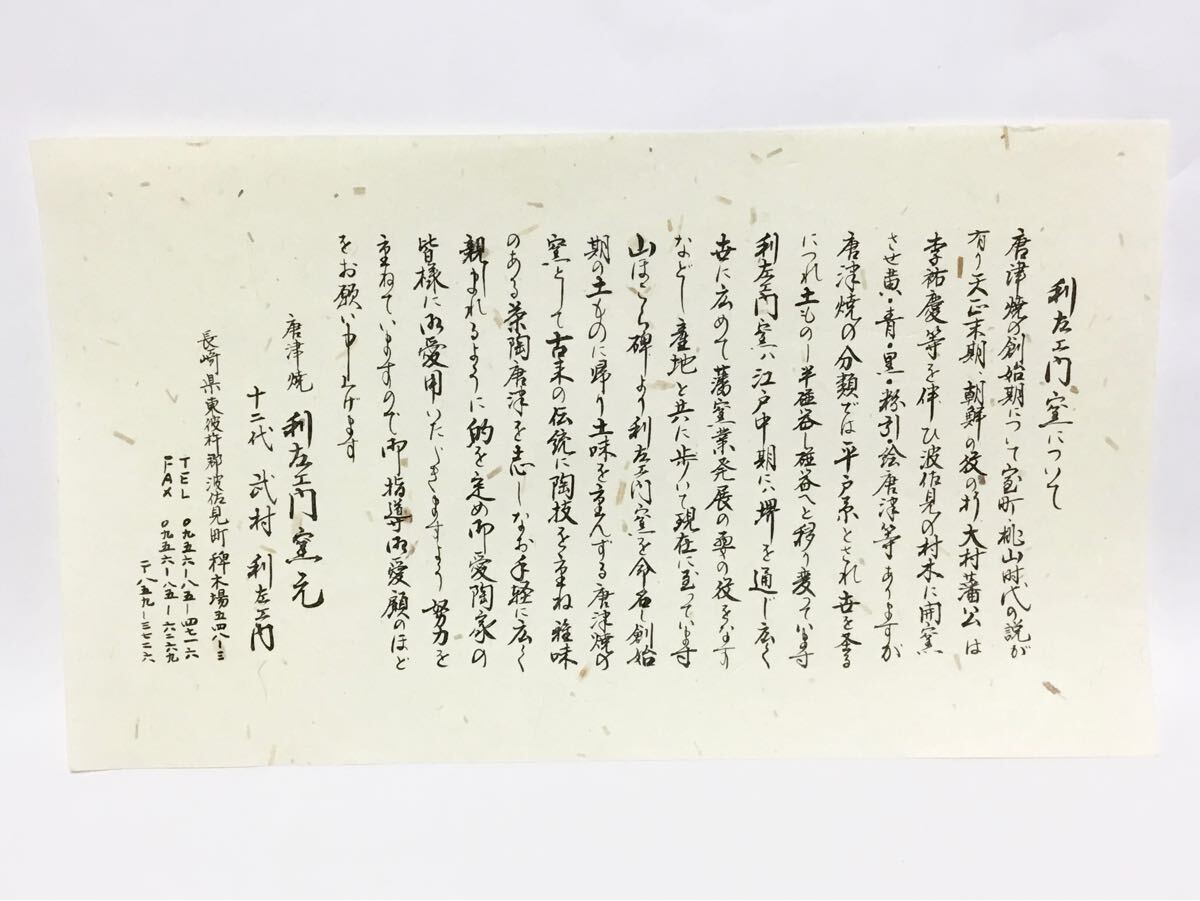 利左エ門窯について
唐津焼の創始期について室町、桃山時代の説が
有り天正末期、朝鮮の役の折り大村藩公は
李祐慶等を伴ひ波佐見の村木に開窯
させ黄・青・黒・粉引・絵唐津等ありますが
唐津焼の分類では平戸系とされ世を系る
につれ土もの―半磁器―磁器へと移り変っています
利左エ門窯ハ江戸中期にハ堺を通じ広く
世に広めて藩窯業発展の要の役をなす
などし産地と共に歩いて現在に至っています
山ほこら碑より利左エ門窯を命名し創始
期の土ものに帰り土味を重んずる唐津焼の
窯として古来の伝統に陶技を重ね雅味
のある茶陶唐津を志しなお手軽に広く
親しまれるように的を定め御愛陶家の
皆様に御愛用いただきますよう努力を
重ねていますので御指導御愛顧のほど
をお願い申し上げます
唐津焼 利左エ門窯元
十二代 武村 利左エ門
長崎県東彼杵郡波佐見町稗木場五四八―三
TEL 〇九五六―八五―四七一六
FAX 〇九五六―八五―六二六九
〒八五九―三七二六